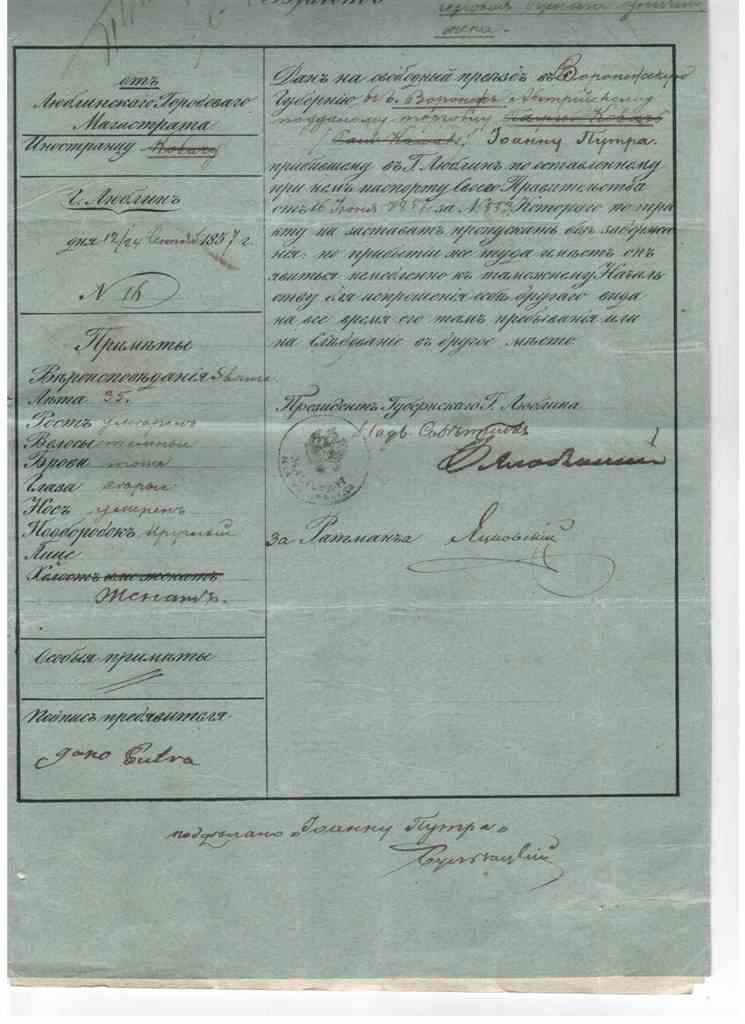 отъ
Люблинскаго Городоваго
Магистрата
Иностранцу
Г. Люблинъ
дня 12/24 1857 г.
N 18
Примѣты
Вѣроисповѣданія
Лѣта 35.
Ростъ умѣренъ
Волосы темныи
Брови тоже
Глаза
Носъ умѣренъ
Подбородокъ круглый
Лице
Холостъ или женатъ
Женатъ.
Особыя примѣты
Подпись предъявителя
Putra
Данъ на свободный проѣздъ въ Воронежскую
Губернію въ г. Воронежъ Австрійскому
подданому торговцу
Іоанну Путра.
прибывшему въ Г. Люблинъ по оставленному
при немъ паспорту Своего Правительства
отъ 16 Іюня 1857 за N. 553, Котораго по тра
кту на заставахъ пропускать безъ задержа
нія: по прибытіи же туда имѣетъ онъ
явиться немедленно къ таможенному Началь
ству для испрошенія себѣ другаго вида
на все время его тамъ пребыванія или
на слѣдованіе въ другое мѣсто.
Президентъ Губернскаго Г. Люблина
Надв. Совѣтникъ
За Ратмана Яцковскій
подписано „Іоанну Путра“